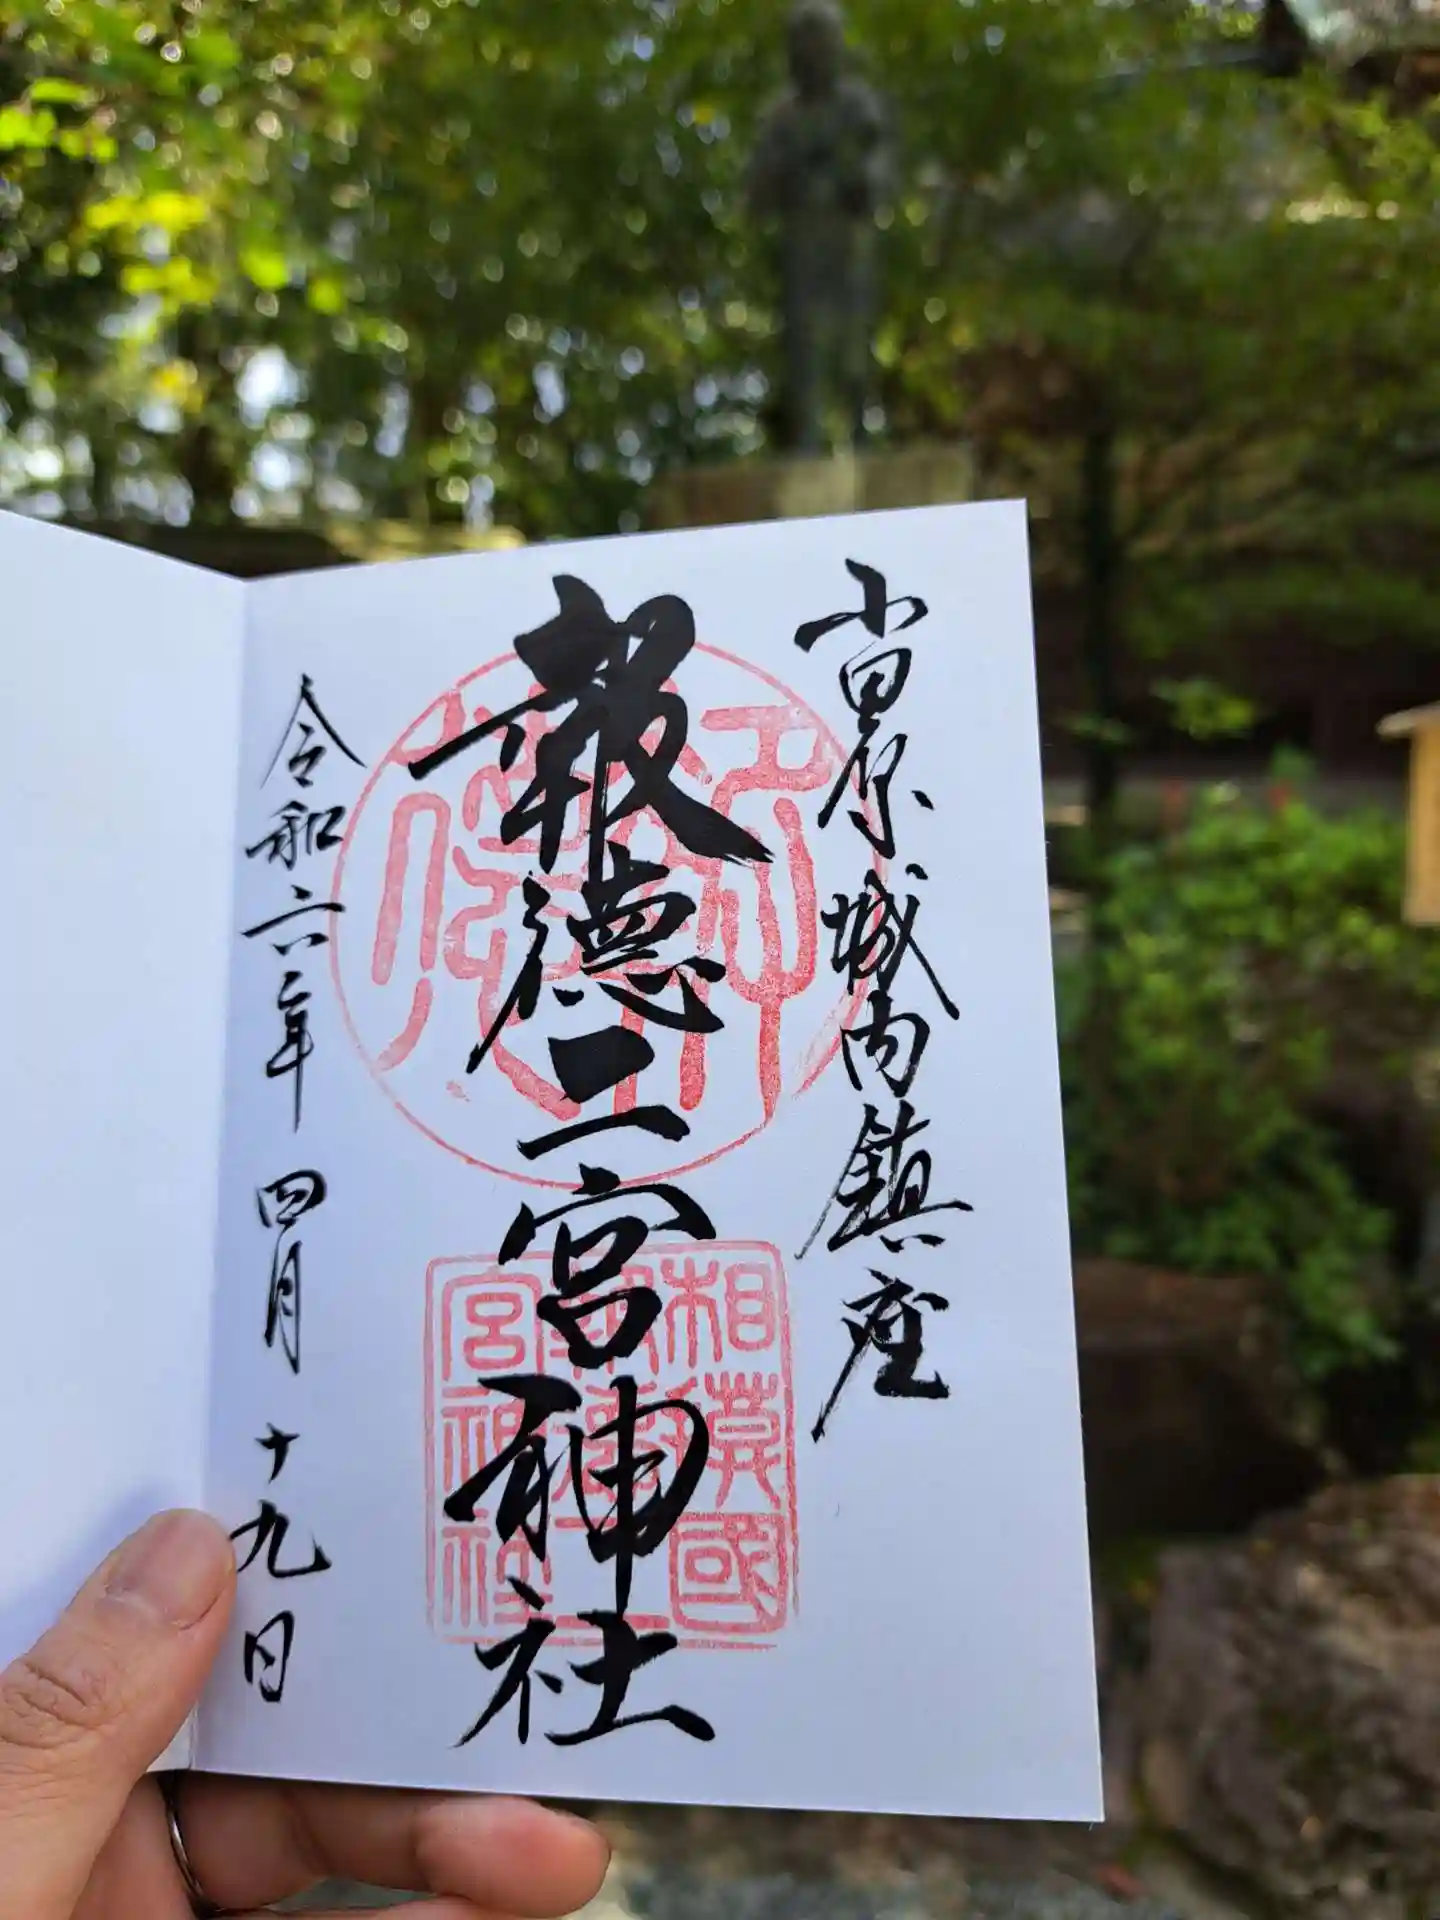 小田原城内鎮座
報徳二宮神社
相模國
報徳二
宮神社
令和六年 四月 十九日